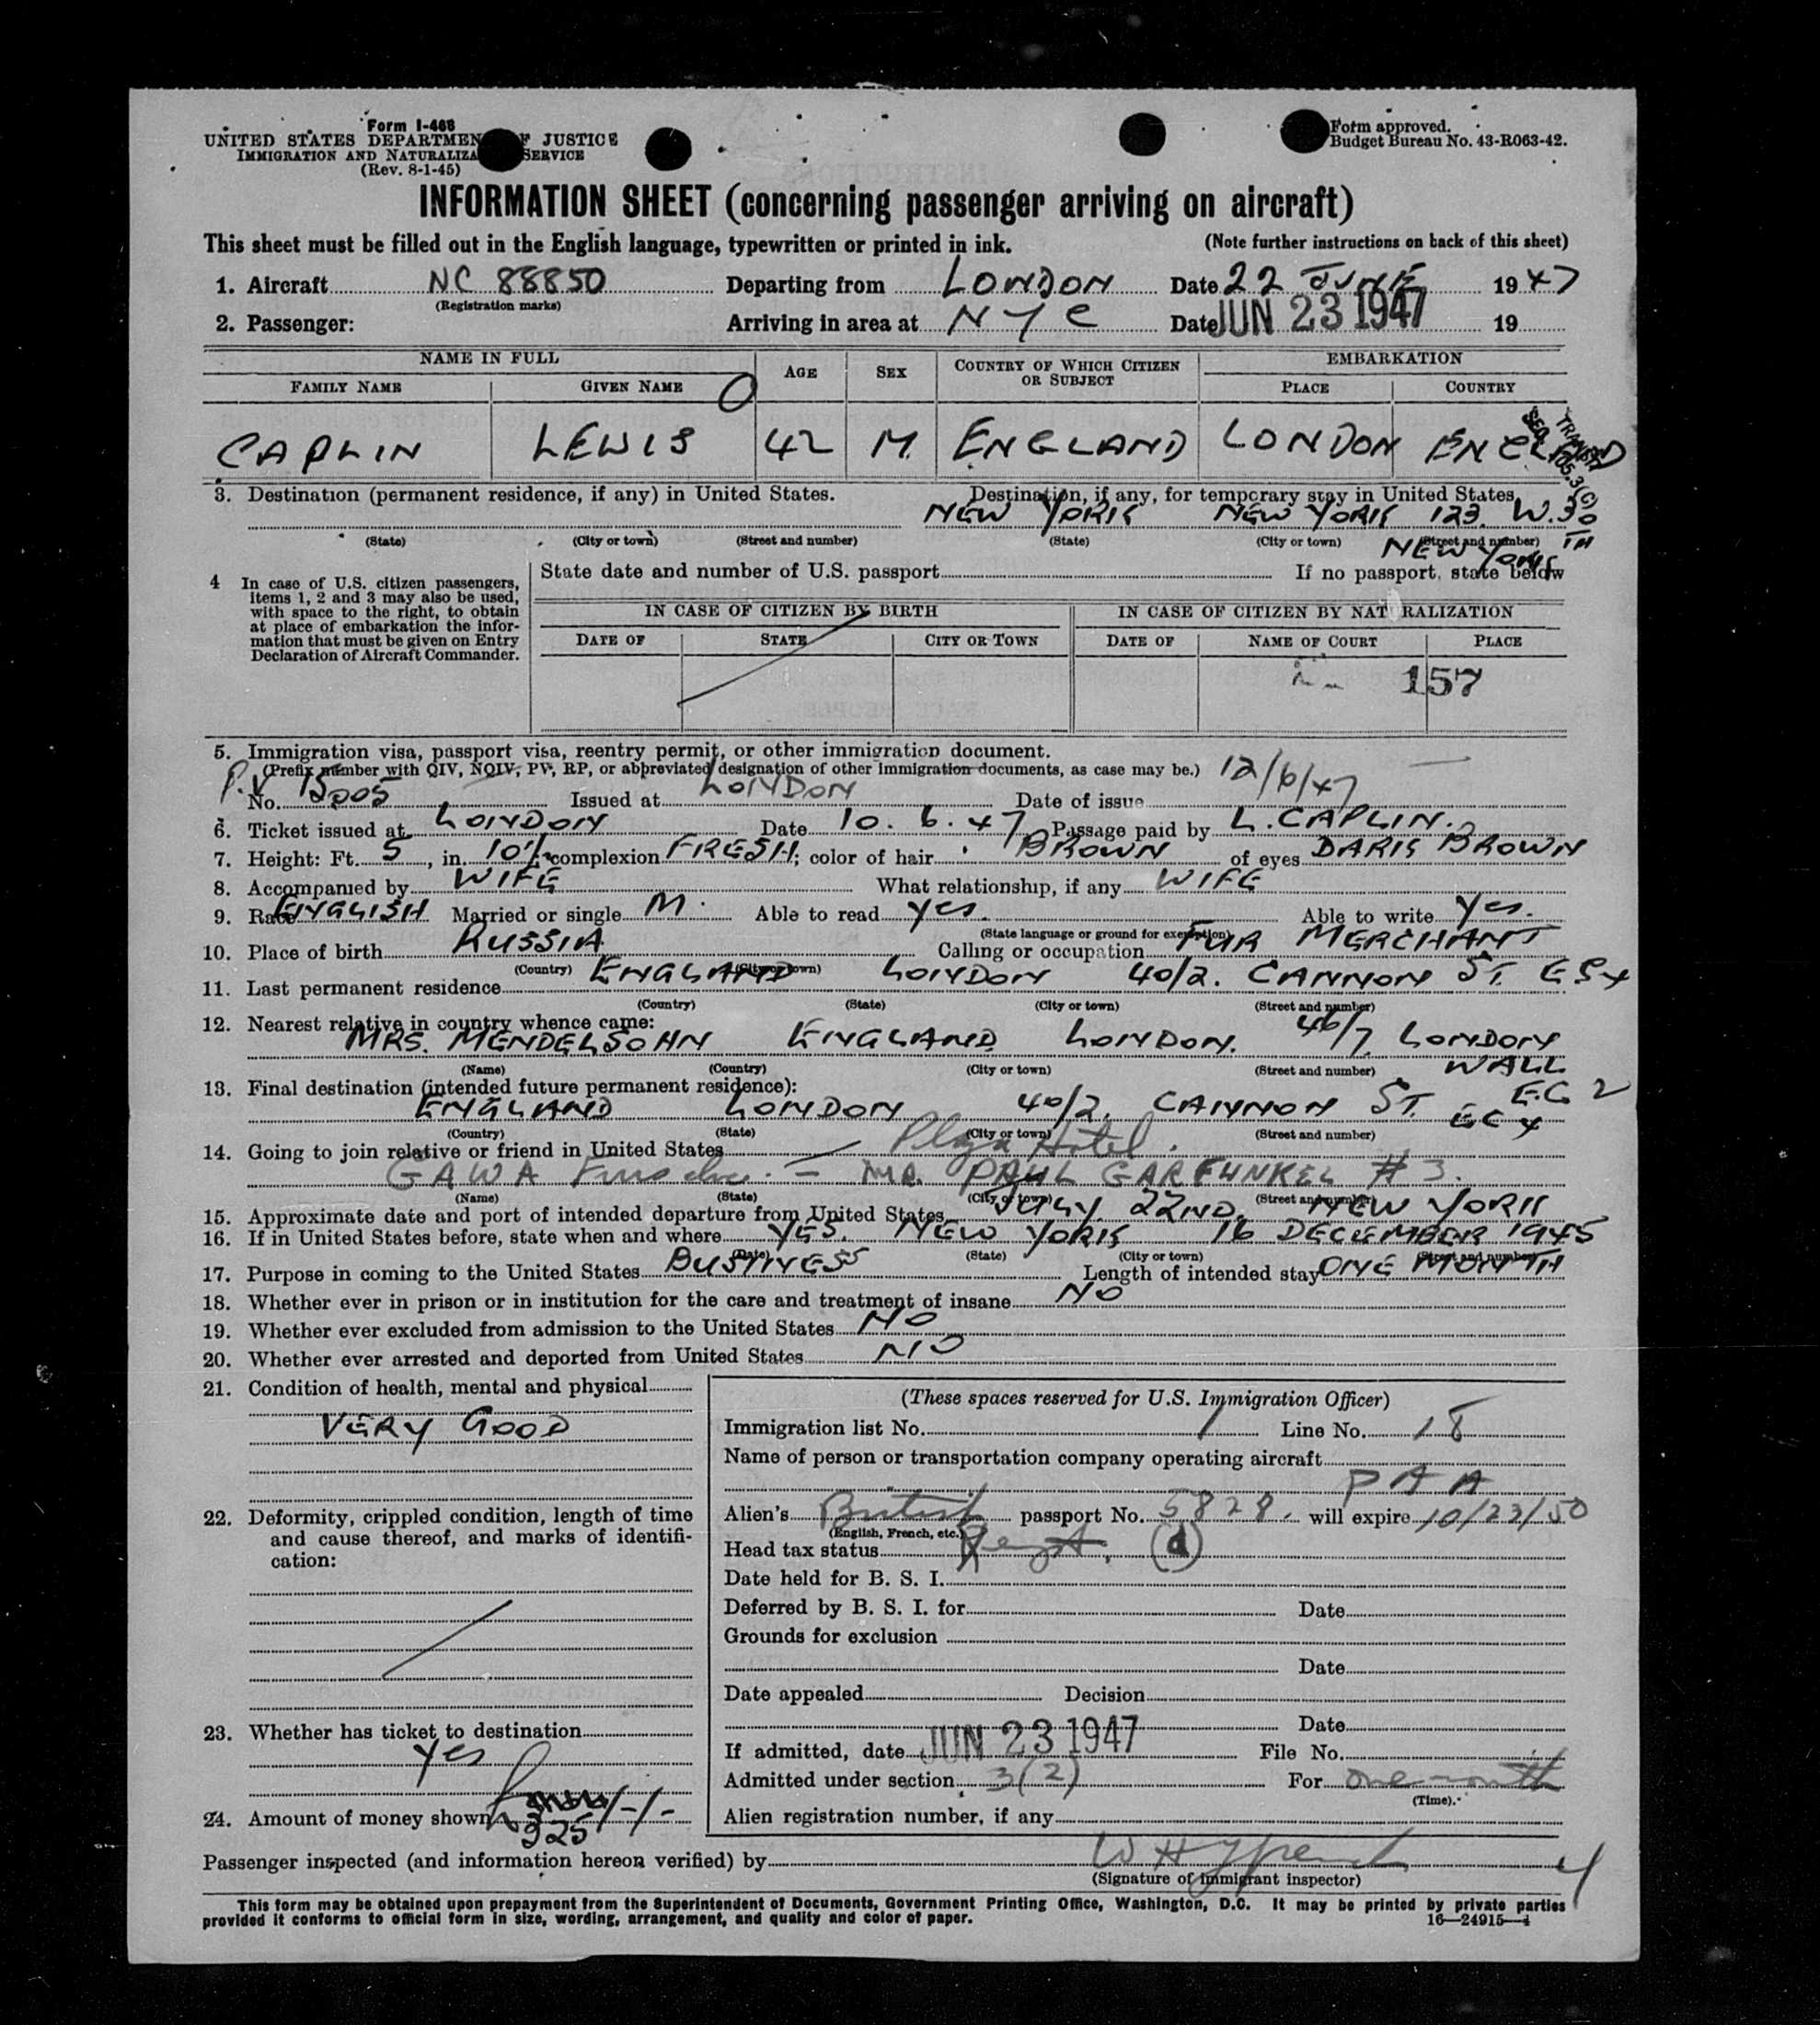 Form I-468
UNITED STATES DEPARTMENT OF JUSTICE
IMMIGRATION AND NATURALIZATION SERVICE
(Rev. 8-1-45)
Form approved.
Budget Bureau No. 43-R063-42.
INFORMATION SHEET (concerning passenger arriving on aircraft)
This sheet must be filled out in the English language, typewritten or printed in ink. (Note further instructions on back of this sheet)
1. Aircraft NC 88850 Departing from LONDON Date 22 JUNE 1947
(Registration marks)
2. Passenger: Arriving in area at NYC Date JUN 23 1947 19
NAME IN FULL AGE SEX COUNTRY OF WHICH CITIZEN OR SUBJECT EMBARKATION
FAMILY NAME GIVEN NAME PLACE COUNTRY
CAPLIN LEWIS 42 M. ENGLAND LONDON ENGLAND
3. Destination (permanent residence, if any) in United States. Destination, if any, for temporary stay in United States.
NEW YORK NEW YORK 123. W. 30 TH
(State) (City or town) (Street and number) (State) (City or town) (Street and number)
NEW YORK
4 In case of U.S. citizen passengers, items 1, 2 and 3 may also be used, with space to the right, to obtain at place of embarkation the information that must be given on Entry Declaration of Aircraft Commander.
State date and number of U.S. passport If no passport, state below
IN CASE OF CITIZEN BY BIRTH IN CASE OF CITIZEN BY NATURALIZATION
DATE OF STATE CITY OR TOWN DATE OF NAME OF COURT PLACE
157
5. Immigration visa, passport visa, reentry permit, or other immigration document.
(Prefix number with QIV, NQIV, PV, RP, or abbreviated designation of other immigration documents, as case may be.)
P.V No. 15005 Issued at LONDON Date of issue 12/6/47
6. Ticket issued at LONDON Date 10. 6. 47 Passage paid by L. CAPLIN.
7. Height: Ft. 5, in. 10½; complexion FRESH; color of hair BROWN of eyes DARK BROWN
8. Accompanied by WIFE What relationship, if any WIFE
9. Race ENGLISH Married or single M. Able to read Yes. Able to write Yes.
(State language or ground for exemption)
10. Place of birth RUSSIA Calling or occupation FUR MERCHANT
(Country) (City or town)
11. Last permanent residence ENGLAND LONDON 40/2. CANNON ST. EC4
(Country) (State) (City or town) (Street and number)
12. Nearest relative in country whence came:
MRS. MENDELSOHN ENGLAND LONDON. 46/7 LONDON WALL EC 2
(Name) (Country) (City or town) (Street and number)
13. Final destination (intended future permanent residence):
ENGLAND LONDON 40/2. CANNON ST. EC 4
(Country) (State) (City or town) (Street and number)
14. Going to join relative or friend in United States Plaza Hotel.
GAWA – MR. PAUL GARFUNKEL # 3.
(Name) (State) (City or town) (Street and number)
15. Approximate date and port of intended departure from United States JULY 22ND. NEW YORK
16. If in United States before, state when and where YES. NEW YORK 16 DECEMBER 1945
(Date) (State) (City or town) (Street and number)
17. Purpose in coming to the United States BUSINESS Length of intended stay ONE MONTH
18. Whether ever in prison or in institution for the care and treatment of insane NO
19. Whether ever excluded from admission to the United States NO
20. Whether ever arrested and deported from United States NO
21. Condition of health, mental and physical
VERY GOOD
22. Deformity, crippled condition, length of time and cause thereof, and marks of identification:
23. Whether has ticket to destination
Yes
24. Amount of money shown 325
(These spaces reserved for U.S. Immigration Officer)
Immigration list No. 1 Line No. 18
Name of person or transportation company operating aircraft
PAA
Alien's British passport No. 5828. will expire 10/23/50
(English, French, etc.)
Head tax status (d)
Date held for B. S. I.
Deferred by B. S. I. for Date
Grounds for exclusion
Date
Date appealed Decision
Date
If admitted, date JUN 23 1947 File No.
Admitted under section 3(2) For one month
(Time).
Alien registration number, if any
Passenger inspected (and information hereon verified) by
(Signature of immigrant inspector)
4
This form may be obtained upon prepayment from the Superintendent of Documents, Government Printing Office, Washington, D.C. It may be printed by private parties
provided it conforms to official form in size, wording, arrangement, and quality and color of paper. 16—24915—1